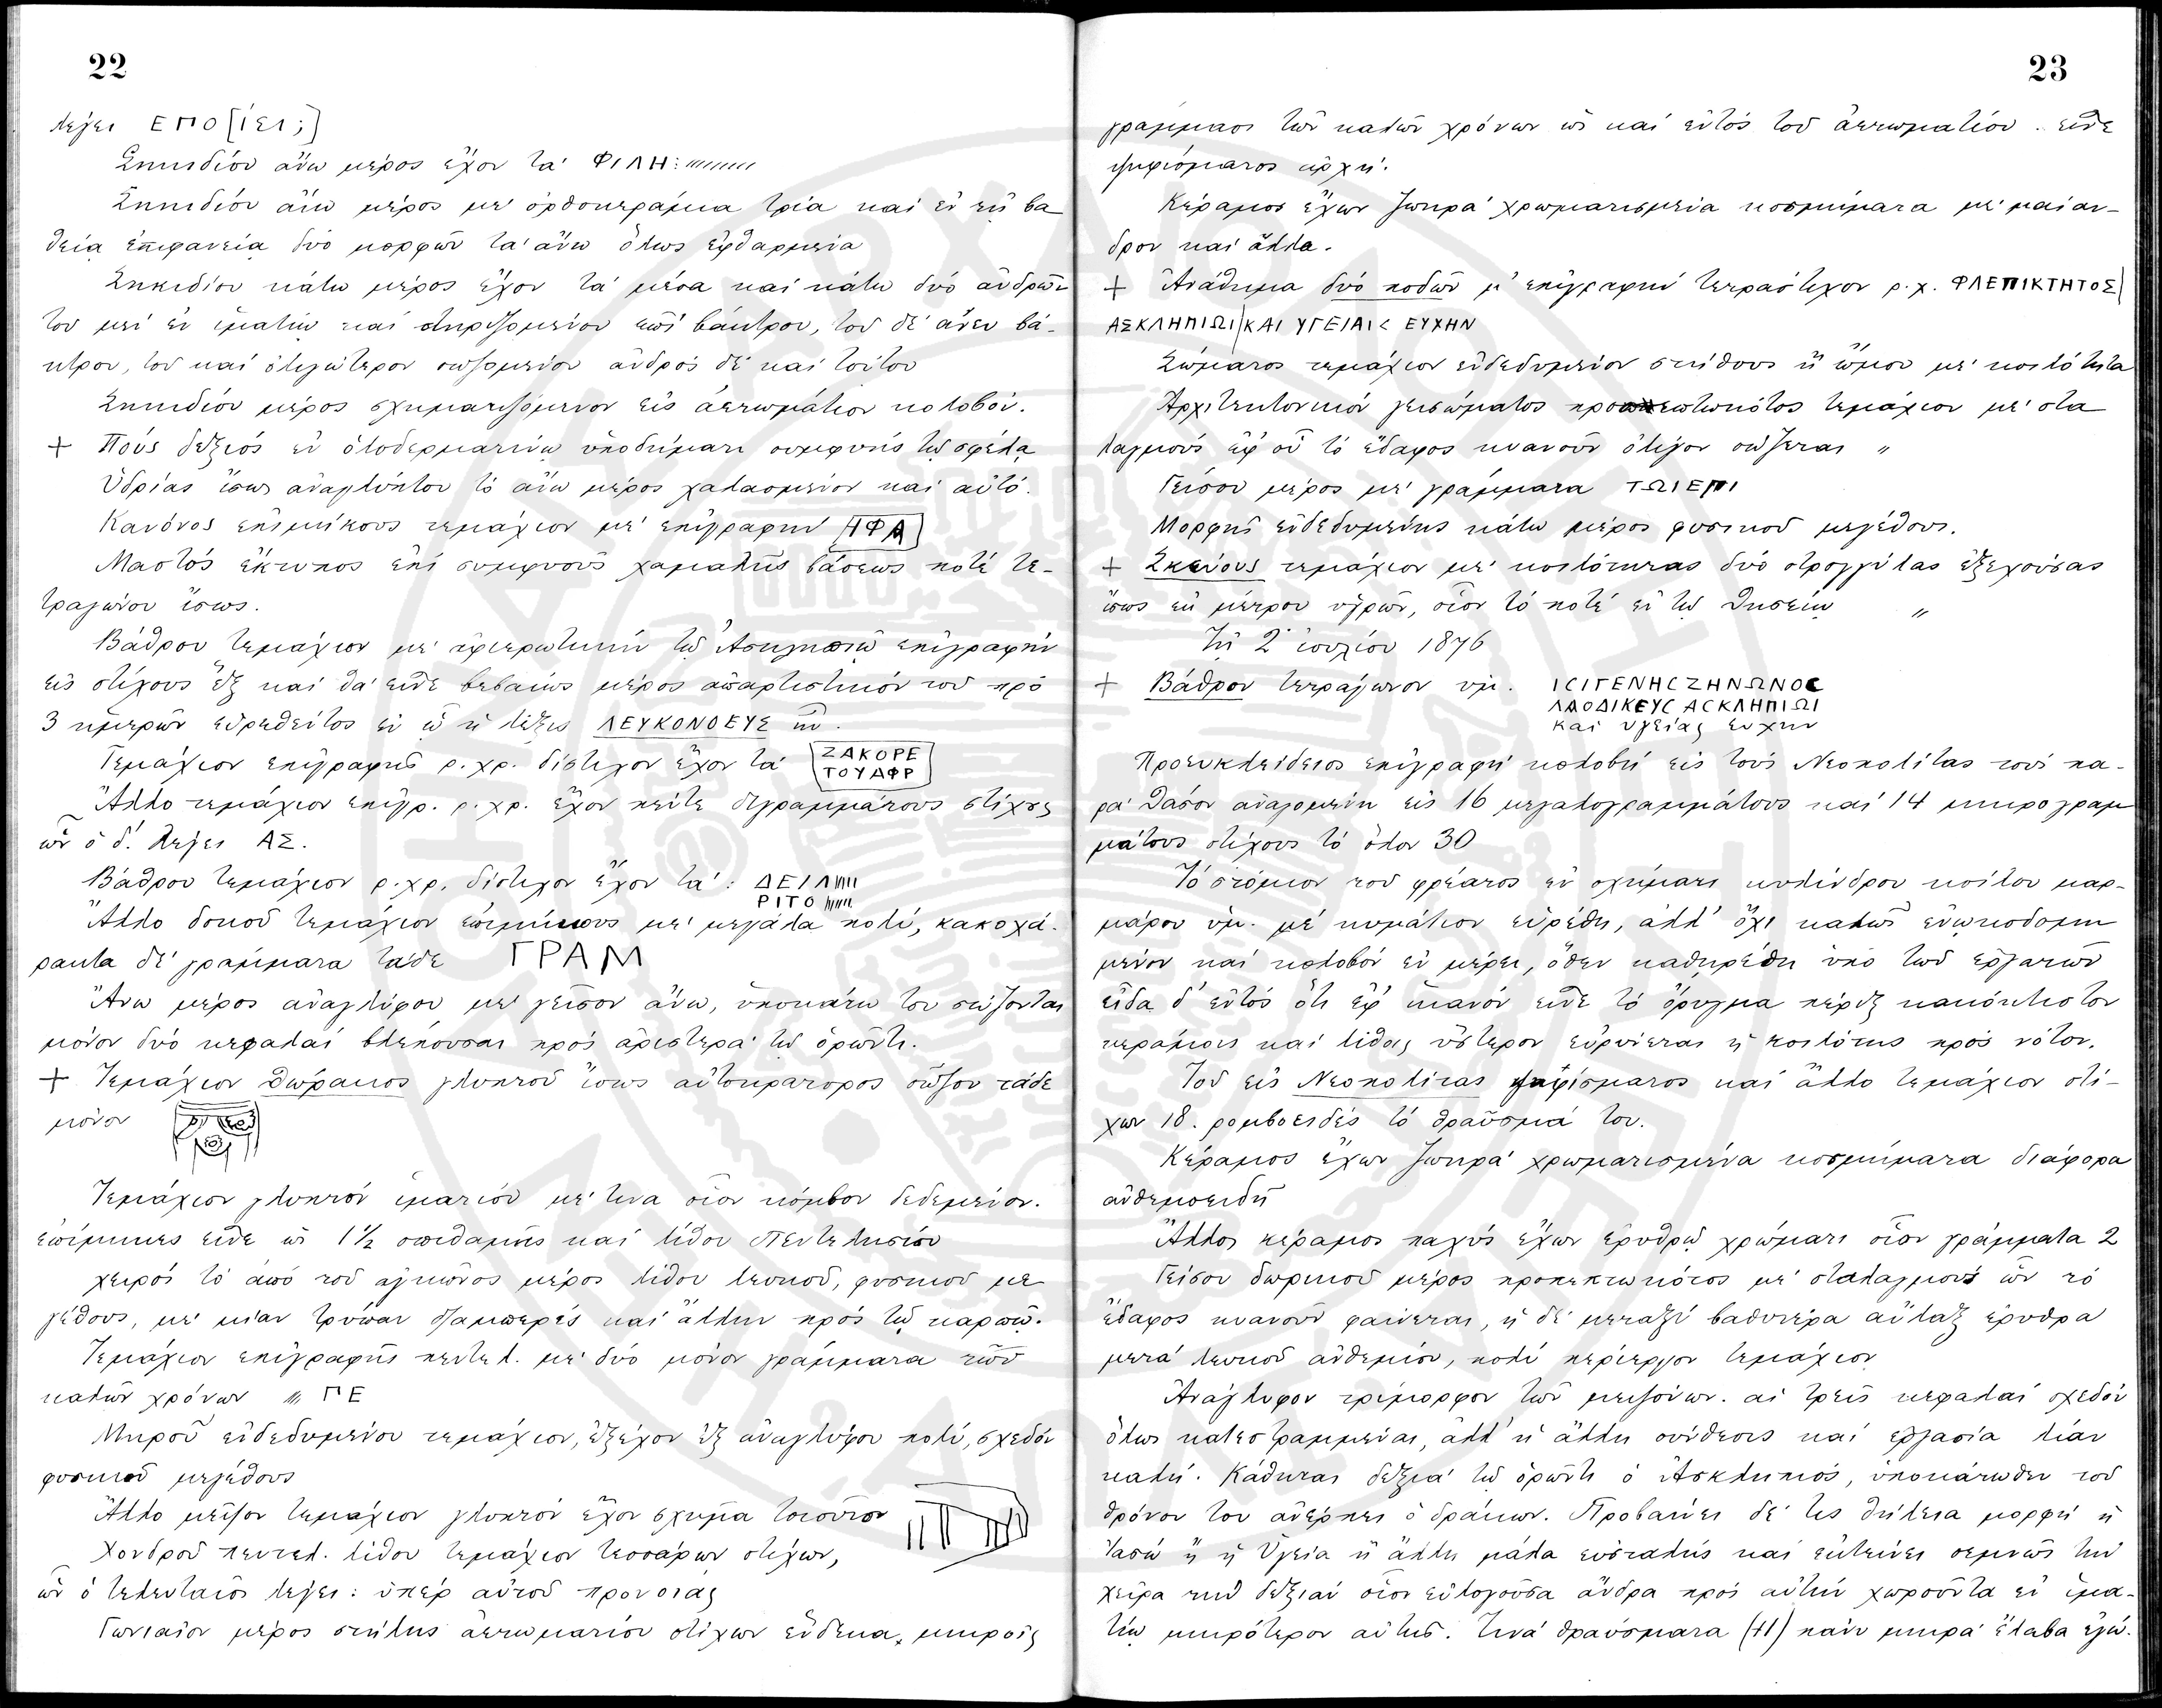 22
λέγει ΕΠΟ[ίει;]
Σηκιδίου ἄνω μέρος ἔχον τὰ ΦΙΛΗ:
Σηκιδίου ἄνω μέρος μὲ ὀρθοκεράμια τρία καὶ ἐν τῇ βα
θείᾳ ἐπιφανείᾳ δύο μορφῶν τὰ ἄνω ὅλως ἐφθαρμένα
Σηκιδίου κάτω μέρος ἔχον τὰ μέσα καὶ κάτω δύο ἀνδρῶν
τοῦ μὲν ἐν ἱματίῳ καὶ στηριζομένου ἐπὶ βάκτρου, τοῦ δὲ ἄνευ βά-
κτρου, τοῦ καὶ ὀλιγώτερον σωζομένου ἀνδρὸς δὲ καὶ τούτου
Σηκιδίου μέρος σχηματιζόμενον εἰς ἀετωμάτιον κολοβόν.
+ Ποὺς δεξιὸς ἐν ὁλοδερματίνῳ ὑποδήματι συμφυὴς τῷ σφέλᾳ
Ὑδρίας ἴσως ἀναγλύπτου τὸ ἄνω μέρος χαλασμένον καὶ αὐτό.
Κανόνος ἐπιμήκους τεμάχιον μὲ ἐπιγραφὴν ΗΦΑ
Μαστὸς ἔκτυπος ἐπὶ συμφυοῦς χαμαλῆς βάσεως ποτὲ τε-
τραγώνου ἴσως.
Βάθρου τεμάχιον μὲ ἀφιερωτικὴν τῷ Ἀσκληπιῷ ἐπιγραφὴν
εἰς στίχους ἓξ καὶ θὰ εἶνε βεβαίως μέρος ἀπαρτιστικὸν τοῦ πρὸ
3 ἡμερῶν εὑρεθέντος ἐν ᾧ ἡ λέξις ΛΕΥΚΟΝΟΕΥΣ ἦν.
Τεμάχιον ἐπιγραφῆς ρ. χρ. δίστιχον ἔχον τὰ ΖΑΚΟΡΕ
ΤΟΥΑΦΡ
Ἄλλο τεμάχιον ἐπιγρ. ρ. χρ. ἔχον πέντε διγραμμάτους στίχους
ὧν ὁ δ΄. λέγει ΑΣ.
Βάθρου τεμάχιον ρ. χρ. δίστιχον ἔχον τὰ: ΔΕΙΛ
ΡΙΤΟ
Ἄλλο δοκοῦ τεμάχιον ἐπιμήκους μὲ μεγάλα πολὺ, κακοχά-
ρακτα δὲ γράμματα τάδε ΓΡΑΜ
Ἄνω μέρος ἀναγλύφου μὲ γεῖσον ἄνω, ὑποκάτω του σώζονται
μόνον δύο κεφαλαὶ βλέπουσαι πρὸς ἀριστερὰ τῷ ὁρῶντι.
+ Τεμάχιον θώρακος γλυπτοῦ ἴσως αὐτοκράτορος σῶζον τάδε
μόνον
Τεμάχιον γλυπτὸν ἱματίου μέ τινα οἷον κόμβον δεδεμένον.
ἐπίμηκες εἶνε ὡς 1 1/2 σπιθαμῆς καὶ λίθου Πεντελησίου
χειρὸς τὸ ἀπὸ τοῦ ἀγκῶνος μέρος λίθου λευκοῦ, φυσικοῦ με
γέθους, μὲ μίαν τρύπαν διαμπερὲς καὶ ἄλλην πρὸς τῷ καρπῷ.
Τεμάχιον ἐπιγραφῆς πεντελ. μὲ δύο μόνον γράμματα τῶν
καλῶν χρόνων ΠΕ
Μηροῦ ἐνδεδυμένου τεμάχιον, ἐξέχον ἐξ ἀναγλύφου πολύ, σχεδὸν
φυσικοῦ μεγέθους
Ἄλλο μεῖζον τεμάχιον γλυπτὸν ἔχον σχῆμα τοιοῦτον
Χονδροῦ πεντελ. λίθου τεμάχιον τεσσάρων στίχων,
ὧν ὁ τελευταῖος λέγει: ὑπὲρ αὐτοῦ προνοίας
Γωνιαῖον μέρος στήλης ἀετωματίου στίχων ἕνδεκα, μικροῖς
23
γράμμασι τῶν καλῶν χρόνων ὡς καὶ ἐντὸς τοῦ ἀετωματίου. εἶνε
ψηφίσματος ἀρχή.
Κέραμος ἔχων ζωηρὰ χρωματισμένα κοσμήματα μὲ μαίαν-
δρον καὶ ἄλλα.
+ Ἀνάθημα δύο ποδῶν μ' ἐπιγραφὴν τετράστιχον ρ. χ. ΦΛΕΠΙΚΤΗΤΟΣ|
ΑΣΚΛΗΠΙΩΙ|ΚΑΙ ΥΓΕΙΑΙ< ΕΥΧΗΝ
Σώματος τεμάχιον ἐνδεδυμένου στήθους ἢ ὤμου μὲ κοιλότητα
Ἀρχιτεκτονικὸν γεισώματος προπεπτωκότος τεμάχιον μὲ στα
λαγμοὺς ἐφ' οὗ τὸ ἔδαφος κυανοῦν ὀλίγον σώζεται "
Γείσου μέρος μὲ γράμματα ΤΩΙΕΠΙ
Μορφῆς ἐνδεδυμένης κάτω μέρος φυσικοῦ μεγέθους.
+ Σκεύους τεμάχιον μὲ κοιλότητας δύο στρογγύλας ἐξεχούσας
ἴσως ἐκ μέτρου ὑγρῶν, οἷον τὸ ποτὲ ἐν τῷ Θησείῳ "
Τῇ 2 ἰουλίου 1876
+ Βάθρον τετράγωνον ὑμ. ΙϹΙΓΕΝΗϹΖΗΝΩΝΟϹ
ΛΑΟΔΙΚΕΥϹ ΑϹΚΛΗΠΙΩΙ
και υγείας ευχην
Προευκλείδειος ἐπιγραφὴ κολοβὴ εἰς τοὺς Νεοπολίτας τοὺς πα-
ρὰ Θάσον ἀναγομένη εἰς 16 μεγαλογραμμάτους καὶ 14 μικρογραμ
μάτους στίχους τὸ ὅλον 30
Τὸ στόμιον τοῦ φρέατος ἐν σχήματι κυλίνδρου κοίλου μαρ-
μάρου ὑμ. μὲ κυμάτιον εὑρέθη, ἀλλ' ὄχι καλῶς ἐνῳκοδομη
μένον καὶ κολοβὸν ἐν μέρει, ὅθεν καθῃρέθη ὑπὸ τῶν ἐργατῶν
εἶδα δ' ἐντὸς ὅτι ἐφ' ἱκανὸν εἶνε τὸ ὄρυγμα πέριξ κακόκτιστον
κεράμοις καὶ λίθοις ὕστερον εὐρύνεται ἡ κοιλότης πρὸς νότον.
Τοῦ εἰς Νεοπολίτας ψηφίσματος καὶ ἄλλο τεμάχιον στί-
χων 18. ρομβοειδὲς τὸ θραῦσμά του.
Κέραμος ἔχων ζωηρὰ χρωματισμένα κοσμήματα διάφορα
ἀνθεμοειδῆ
Ἄλλος κέραμος παχὺς ἔχων ἐρυθρῷ χρώματι οἷον γράμματα 2
Γείσου δωρικοῦ μέρος προπεπτωκότος μὲ σταλαγμοὺς ὧν τὸ
ἔδαφος κυανοῦν φαίνεται, ἡ δὲ μεταξὺ βαθυτέρα αὖλαξ ἐρυθρὰ
μετὰ λευκοῦ ἀνθεμίου, πολὺ περίεργον τεμάχιον
Ἀνάγλυφον τρίμορφον τῶν μειζόνων. αἱ τρεῖς κεφαλαὶ σχεδὸν
ὅλως κατεστραμμέναι, ἀλλ' ἡ ἄλλη σύνθεσις καὶ ἐργασία λίαν
καλή. Κάθηται δεξιὰ τῷ ὁρῶντι ὁ Ἀσκληπιός, ὑποκάτωθεν τοῦ
θρόνου του ἀνέρπει ὁ δράκων. Προβαίνει δέ τις θήλεια μορφὴ ἡ
Ἰασὼ ἢ ἡ Ὑγεία ἢ ἄλλη μάλα εὐσταλὴς καὶ ἐκτείνει σεμνῶς τὴν
χεῖρα τὴν δεξιὰν οἷον εὐλογοῦσα ἄνδρα πρὸς αὐτὴν χωροῦντα ἐν ἱμα-
τίῳ μικρότερον αὐτῆς. Τινὰ θραύσματα (11) πάνυ μικρὰ ἔλαβα ἐγώ.